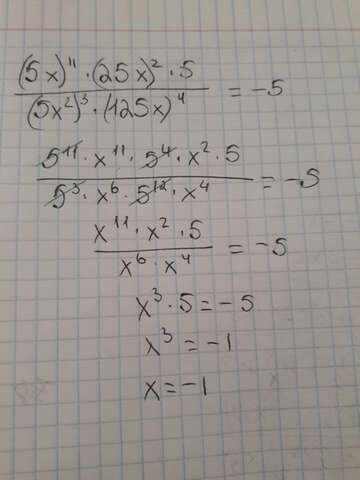 (5x)^11 · (25x)^2 · 5 / (5x^2)^3 · (125x)^4 = -5
5^11 · x^11 · 5^4 · x^2 · 5 / 5^3 · x^6 · 5^12 · x^4 = -5
x^11 · x^2 · 5 / x^6 · x^4 = -5
x^3 · 5 = -5
x^3 = -1
x = -1